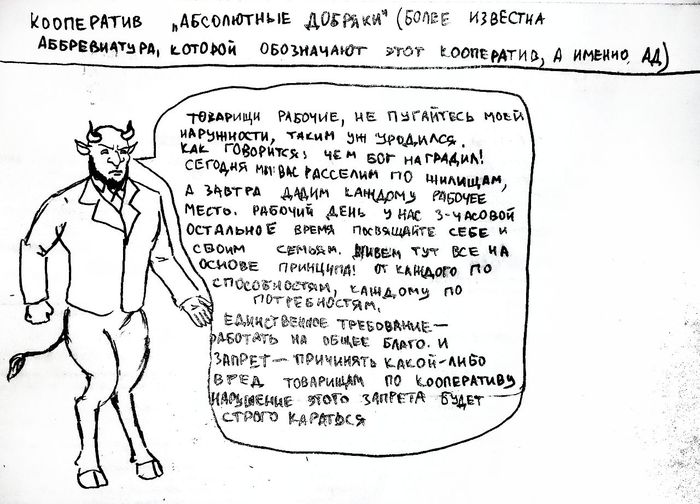 КООПЕРАТИВ „АБСОЛЮТНЫЕ ДОБРЯКИ“ (БОЛЕЕ ИЗВЕСТНА
АББРЕВИАТУРА, КОТОРОЙ ОБОЗНАЧАЮТ ЭТОТ КООПЕРАТИВ, А ИМЕННО АД)
ТОВАРИЩИ РАБОЧИЕ, НЕ ПУГАЙТЕСЬ МОЕЙ
НАРУЖНОСТИ, ТАКИМ УЖ УРОДИЛСЯ.
КАК ГОВОРИТСЯ: ЧЕМ БОГ НАГРАДИЛ!
СЕГОДНЯ МЫ ВАС РАССЕЛИМ ПО ЖИЛИЩАМ,
А ЗАВТРА ДАДИМ КАЖДОМУ РАБОЧЕЕ
МЕСТО. РАБОЧИЙ ДЕНЬ У НАС 3-ЧАСОВОЙ
ОСТАЛЬНОЕ ВРЕМЯ ПОСВЯЩАЙТЕ СЕБЕ И
СВОИМ СЕМЬЯМ. ЖИВЕМ ТУТ ВСЕ НА
ОСНОВЕ ПРИНЦИПА: ОТ КАЖДОГО ПО
СПОСОБНОСТЯМ, КАЖДОМУ ПО
ПОТРЕБНОСТЯМ.
ЕДИНСТВЕННОЕ ТРЕБОВАНИЕ —
РАБОТАТЬ НА ОБЩЕЕ БЛАГО. И
ЗАПРЕТ — ПРИЧИНЯТЬ КАКОЙ-ЛИБО
ВРЕД ТОВАРИЩАМ ПО КООПЕРАТИВУ
НАРУШЕНИЕ ЭТОГО ЗАПРЕТА БУДЕТ
СТРОГО КАРАТЬСЯ